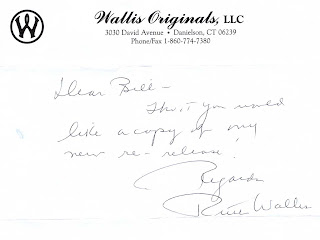 W
Wallis Originals, LLC
3030 David Avenue • Danielson, CT 06239
Phone/Fax 1-860-774-7380
Dear Bill –
Thot you would
like a copy of my
new re-release!
Regards
Ruth Wallis